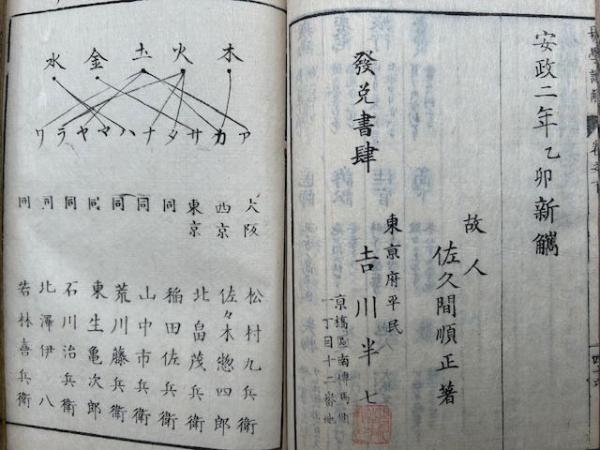 安政二年乙卯新鐫
故人
佐久間順正著
發兌書肆
東京府平民
吉川半七
京橋區南傳馬町
一丁目十二番地
木火土金水
アカサタナハマヤラワ
大阪 松村九兵衛
西京 佐々木惣四郎
東京 北畠茂兵衛
同 稲田佐兵衛
同 山中市兵衛
同 荒川藤兵衛
同 東生亀次郎
同 石川治兵衛
同 北澤伊八
同 若林喜兵衛